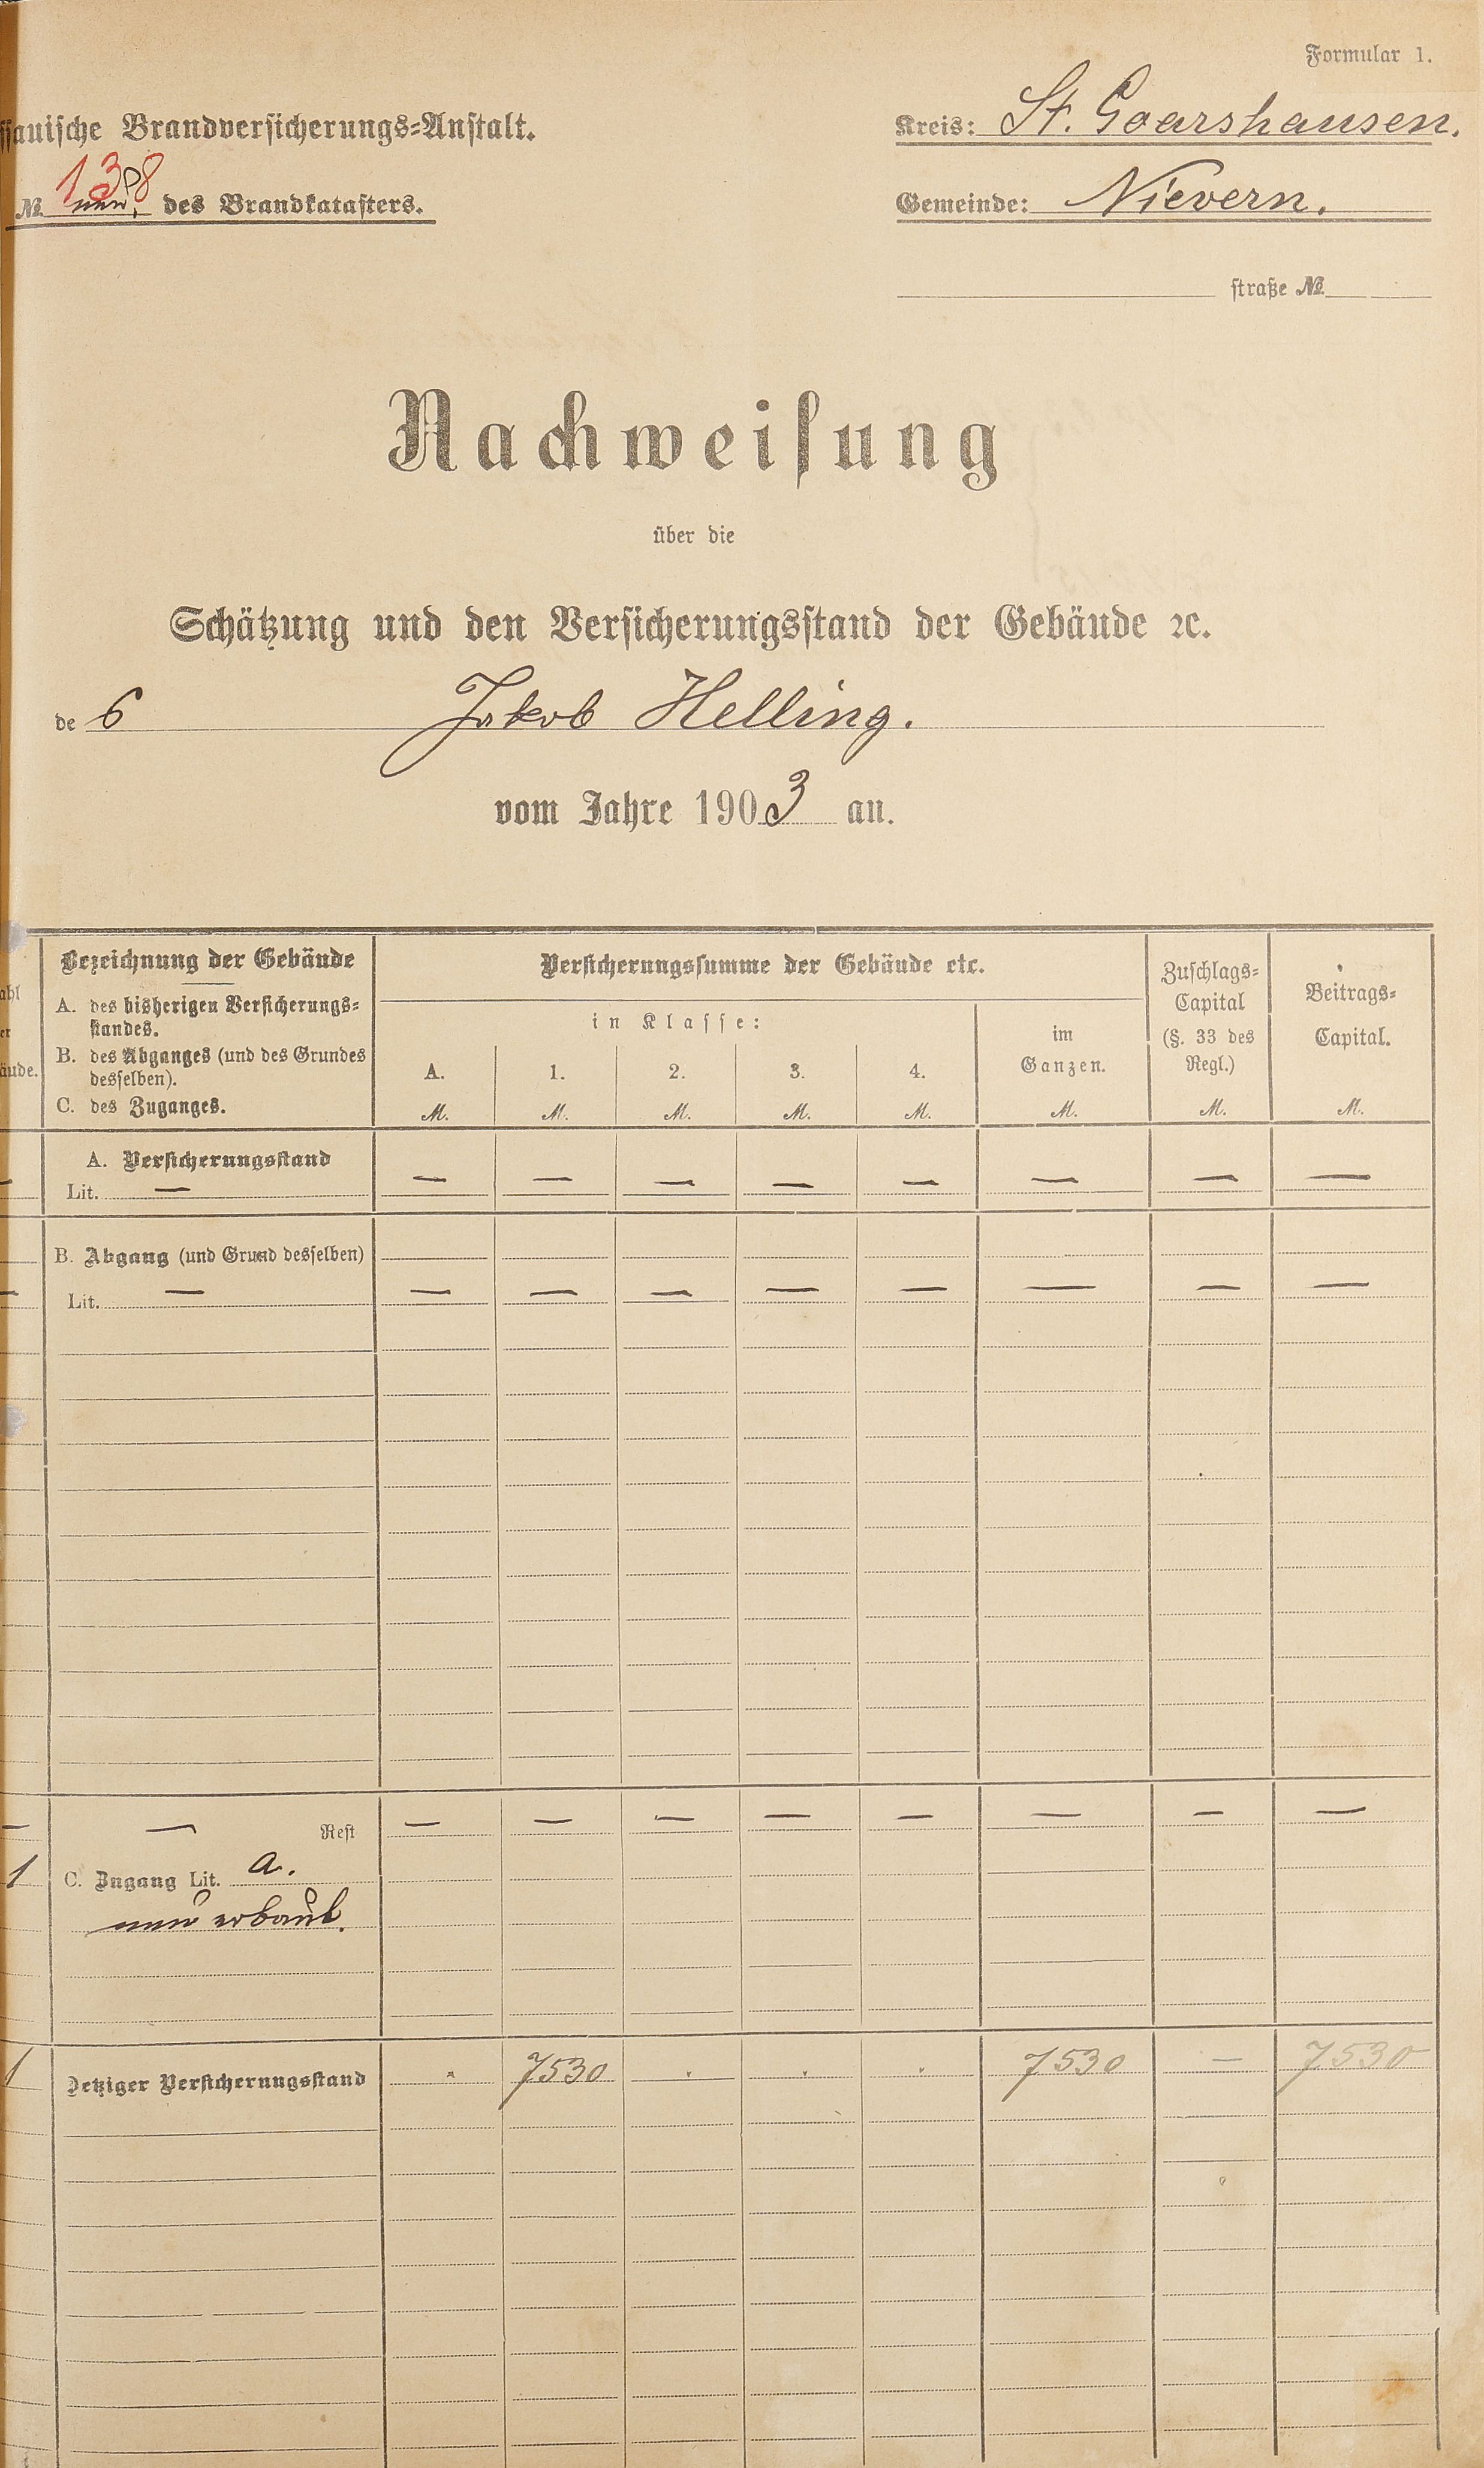 Formular 1.
ssauische Brandversicherungs-Anstalt.
Kreis: St. Goarshausen.
№ 138 neu. des Brandkatasters.
Gemeinde: Nievern.
straße №
Nachweisung
über die
Schätzung und den Versicherungsstand der Gebäude ꝛc.
des Jakob Helling.
vom Jahre 1903 an.
ahl
er
äude.
Bezeichnung der Gebäude
A. des bisherigen Versicherungs-
standes.
B. des Abganges (und des Grundes
desselben).
C. des Zuganges.
Versicherungssumme der Gebäude etc.
in Klasse:
A. 1. 2. 3. 4.
M. M. M. M. M.
im
Ganzen.
M.
Zuschlags-
Capital
(§. 33 des
Regl.)
M.
Beitrags-
Capital.
M.
A. Versicherungsstand
— Lit. — — — — — — — — —
B. Abgang (und Grund desselben)
— Lit. — — — — — — — — —
— — Rest — — — — — — — —
1 C. Zugang Lit. a.
neu erbaut.
1 Jetziger Versicherungsstand " 7530 " " " 7530 — 7530